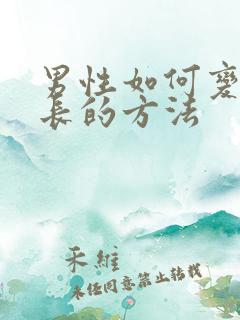 男性如何变
长的方法
禾维
未经同意禁止转载